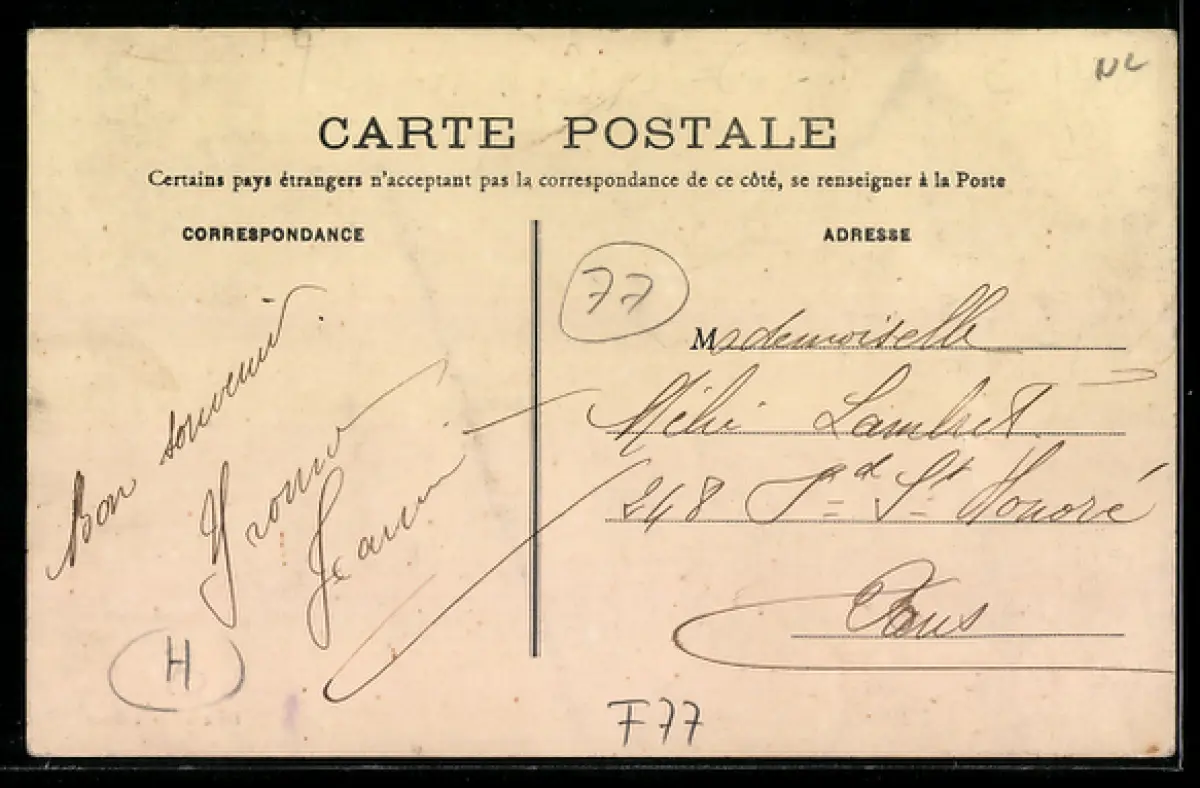 NL
CARTE POSTALE
Certains pays étrangers n'acceptant pas la correspondance de ce côté, se renseigner à la Poste
CORRESPONDANCE
Bon souvenir.
H
ADRESSE
77
Mademoiselle
Lambert
248 St Honoré
Paris
F77